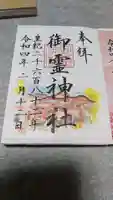 奉拝
御霊神社
皇紀二千六百八十二年
令和四年 月十 日